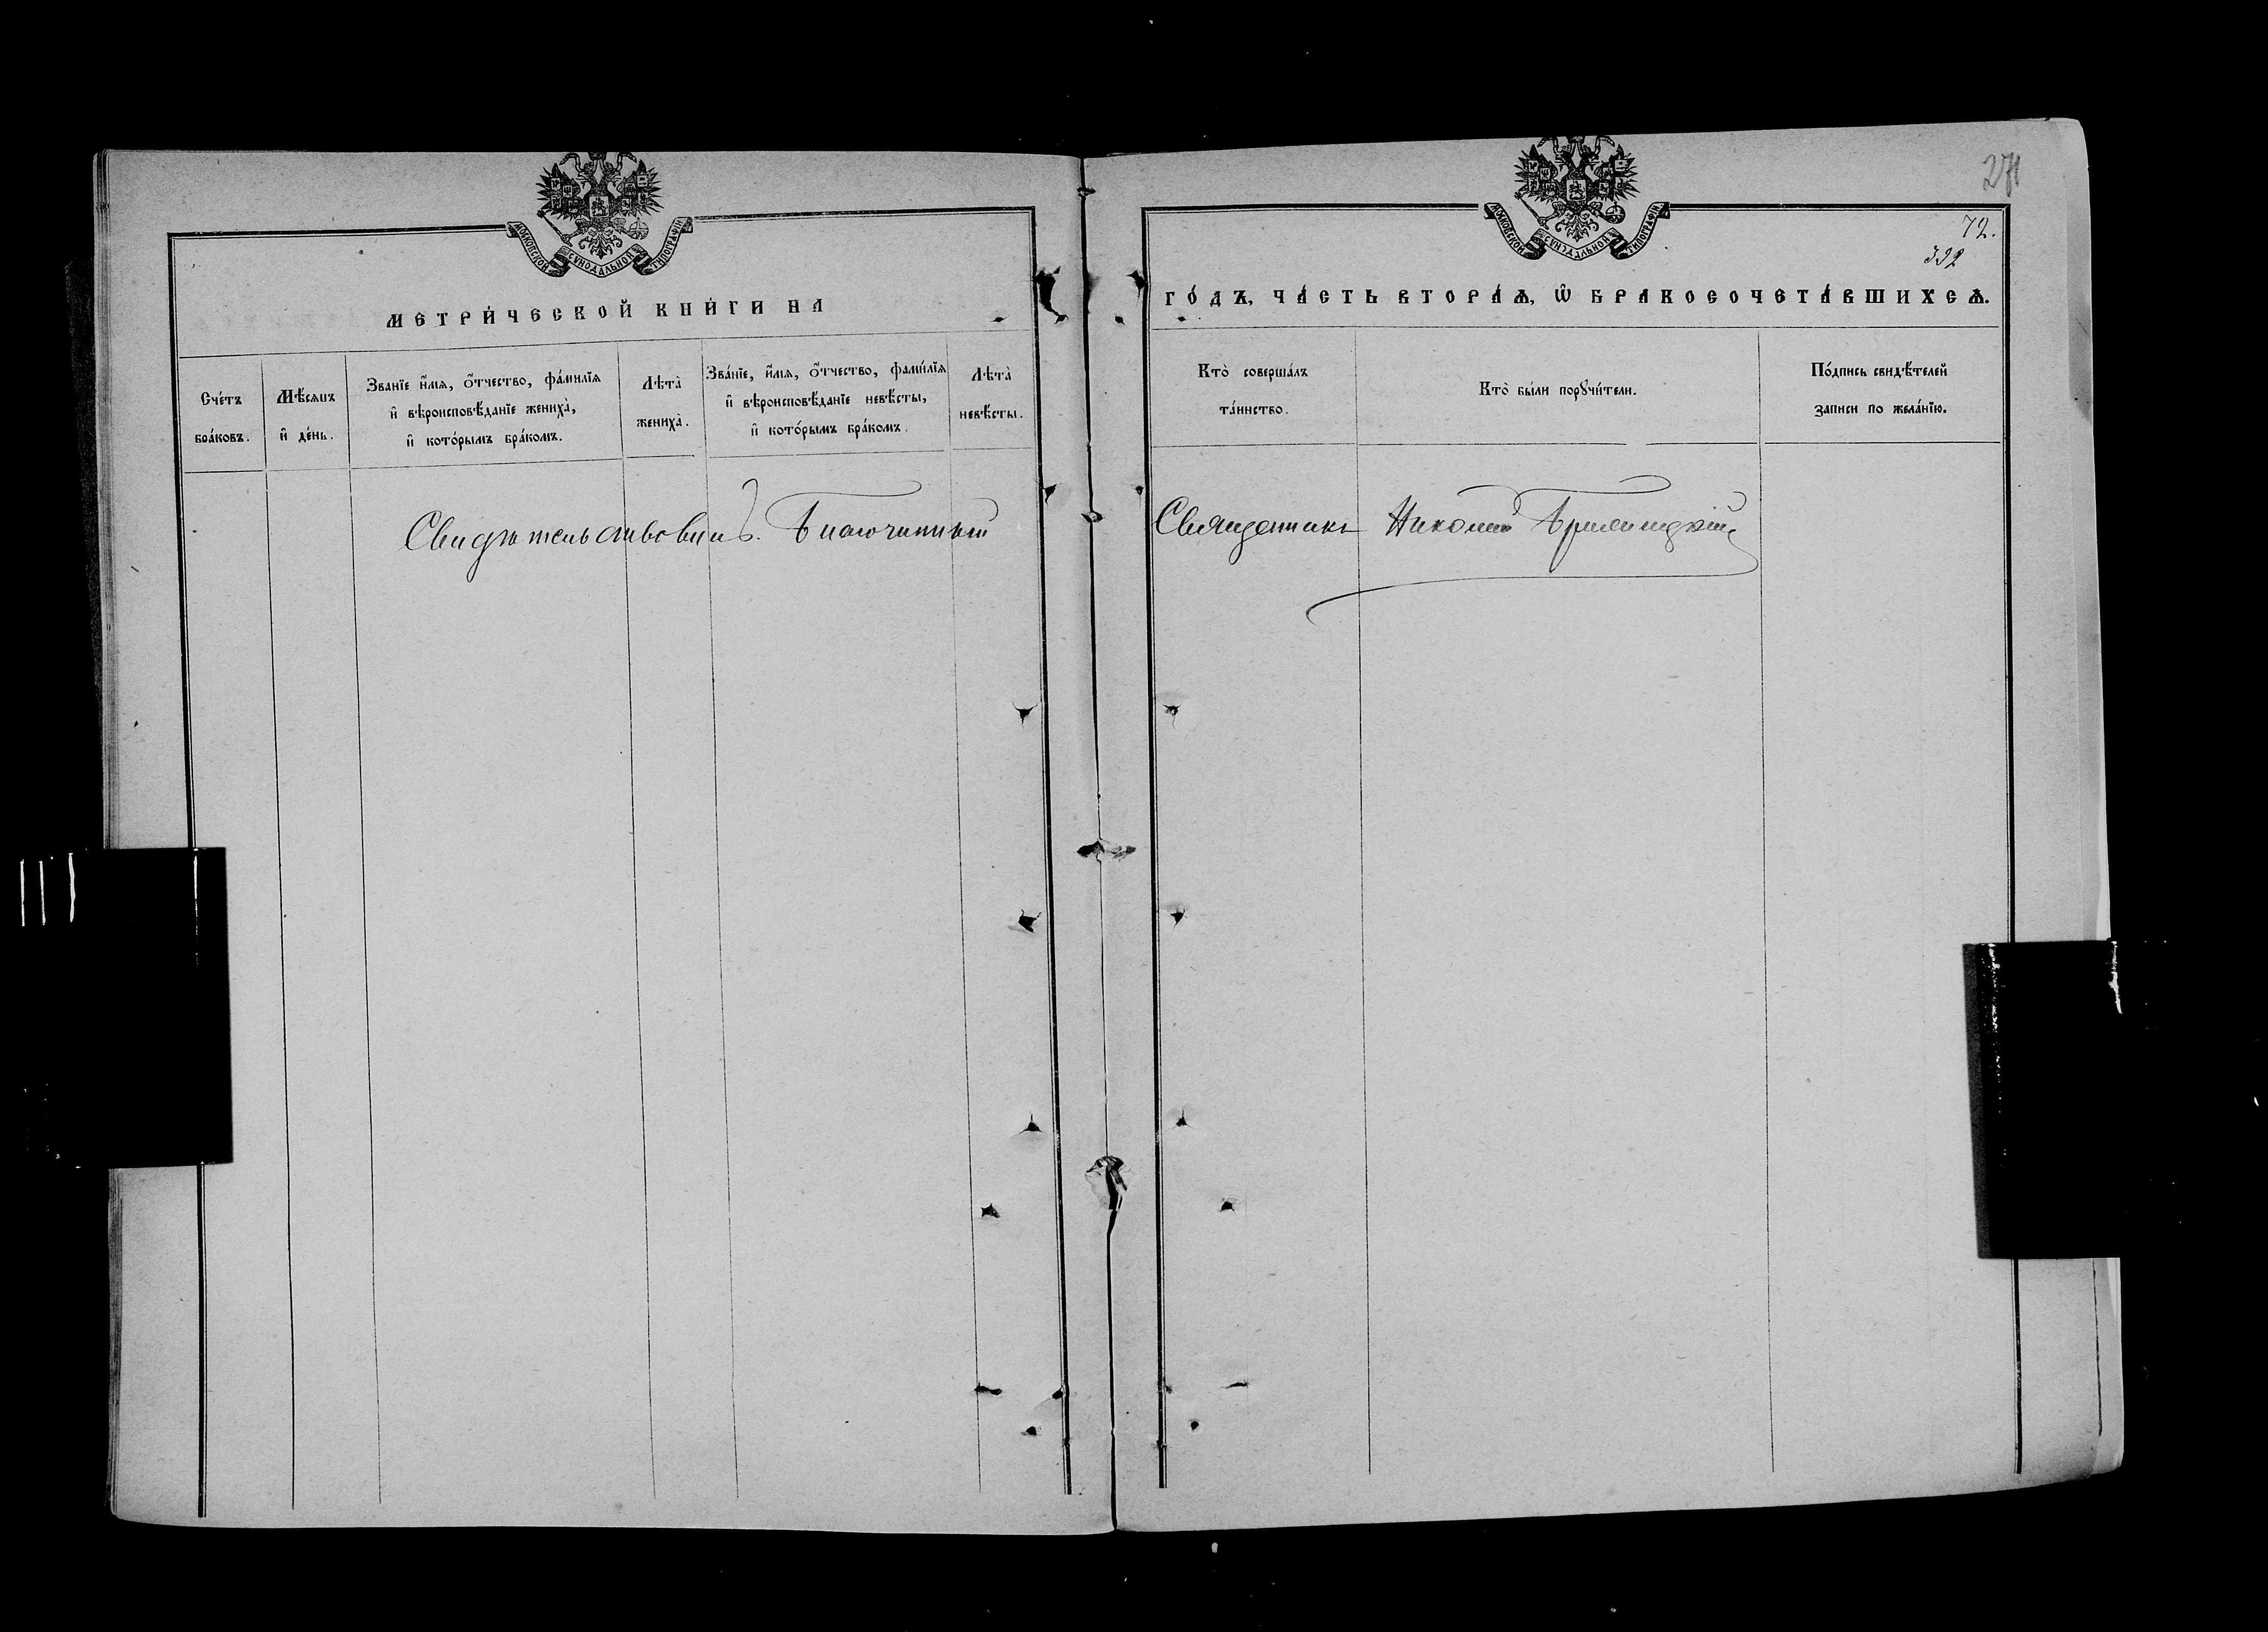 МОСКОВСКОЙ СѴНОДАЛЬНОЙ ТИПОГРАФІИ
МЕТРИ́ЧЕСКОЙ КНИ́ГИ НА
Сче́тъ бра́ковъ.
Мѣ́сяцъ и҆ де́нь.
Зва́нїе и҆́мѧ, ѻ҆́тчество, фамилїѧ
и҆ вѣроисповѣ́данїе жениха̀,
и҆ кото́рымъ бра́комъ.
Лѣта̀
жениха̀.
Зва́нїе, и҆́мѧ, ѻ҆́тчество, фами́лїѧ
и҆ вѣроисповѣ́данїе невѣ́сты,
и҆ кото́рымъ бра́комъ.
Лѣта̀
невѣ́сты.
Свидѣтельствовалъ. Благочинный
271
МОСКОВСКОЙ СѴНОДАЛЬНОЙ ТИПОГРАФІИ
72.
392
ГО́ДЪ, ЧА́СТЬ ВТОРА́Ѧ, Ѡ҆ БРАКОСОЧЕТА́ВШИХСѦ.
Кто̀ соверша́лъ
та́инство.
Кто̀ бы́ли порꙋчи́тели.
По́дпись свидѣ́телей
записи по жела́нїю.
Священникъ Николай